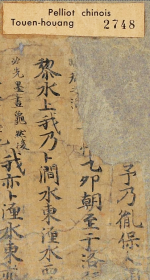 Pelliot chinois
Touen-houang 2748
予乃胤保
乙卯朝至于洛
黎水上我乃卜澗水東瀍水
必先墨畫龜然後
我亦卜瀍水東